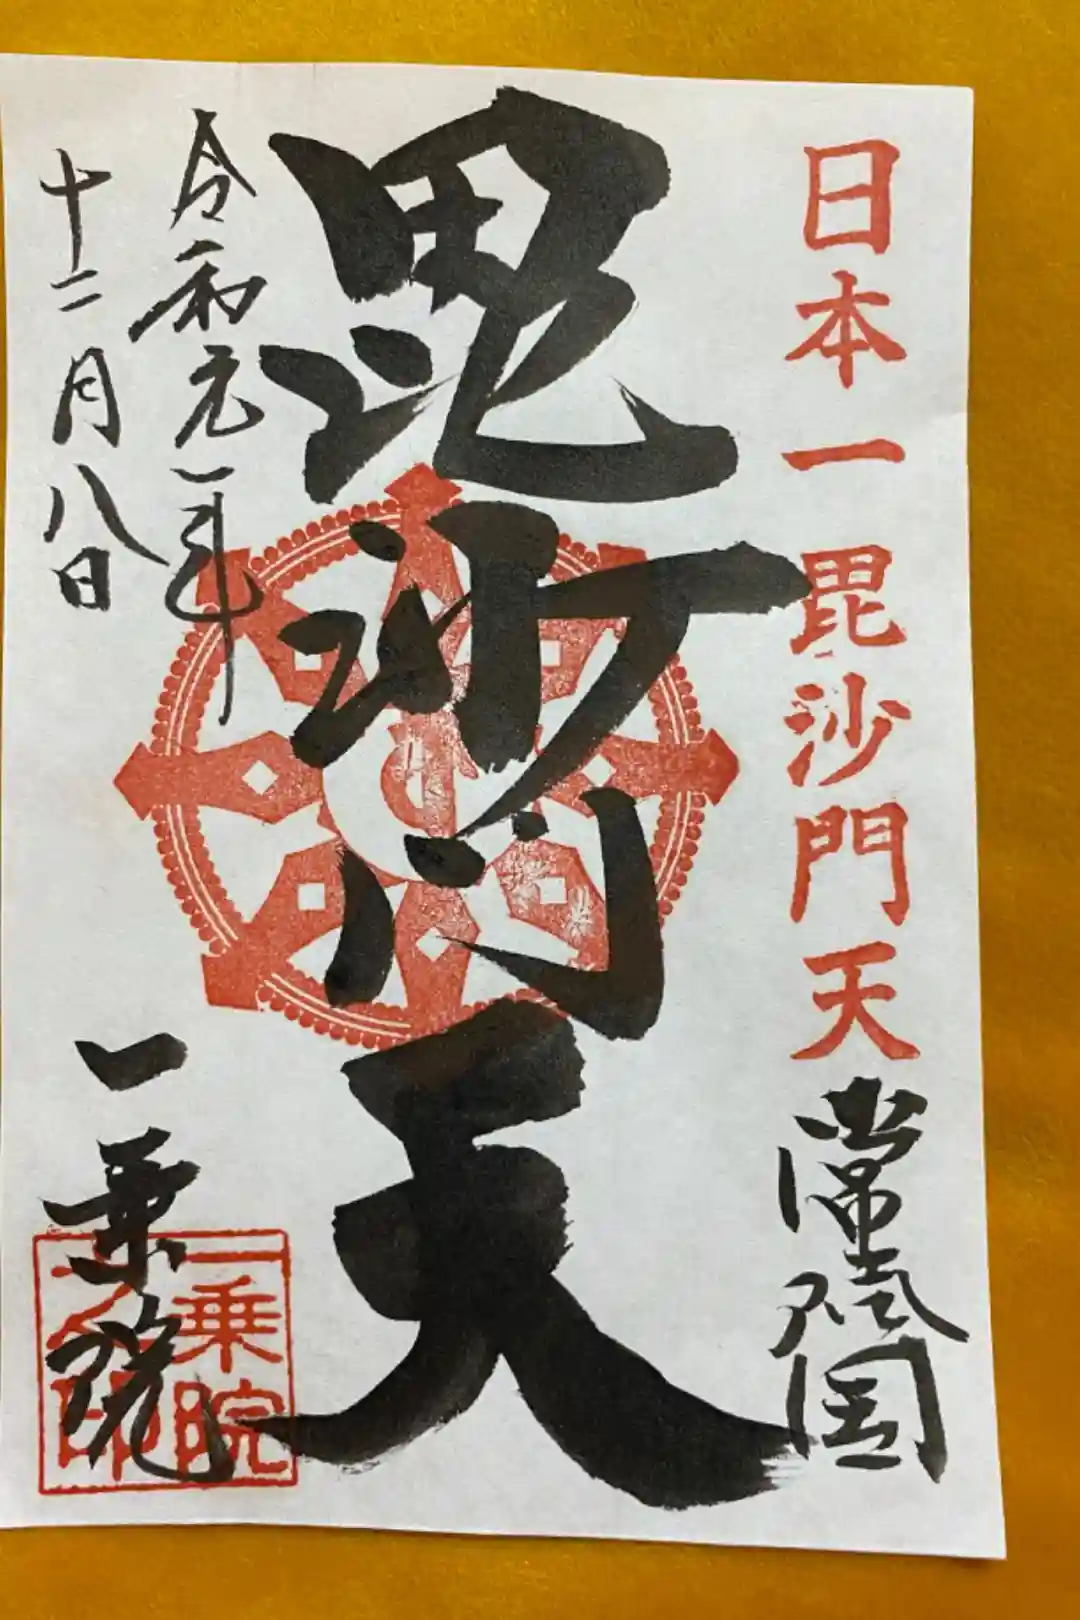 日本一毘沙門天
常陸国
毘沙門天
令和元年
十二月八日
一乗院
一乗院
印